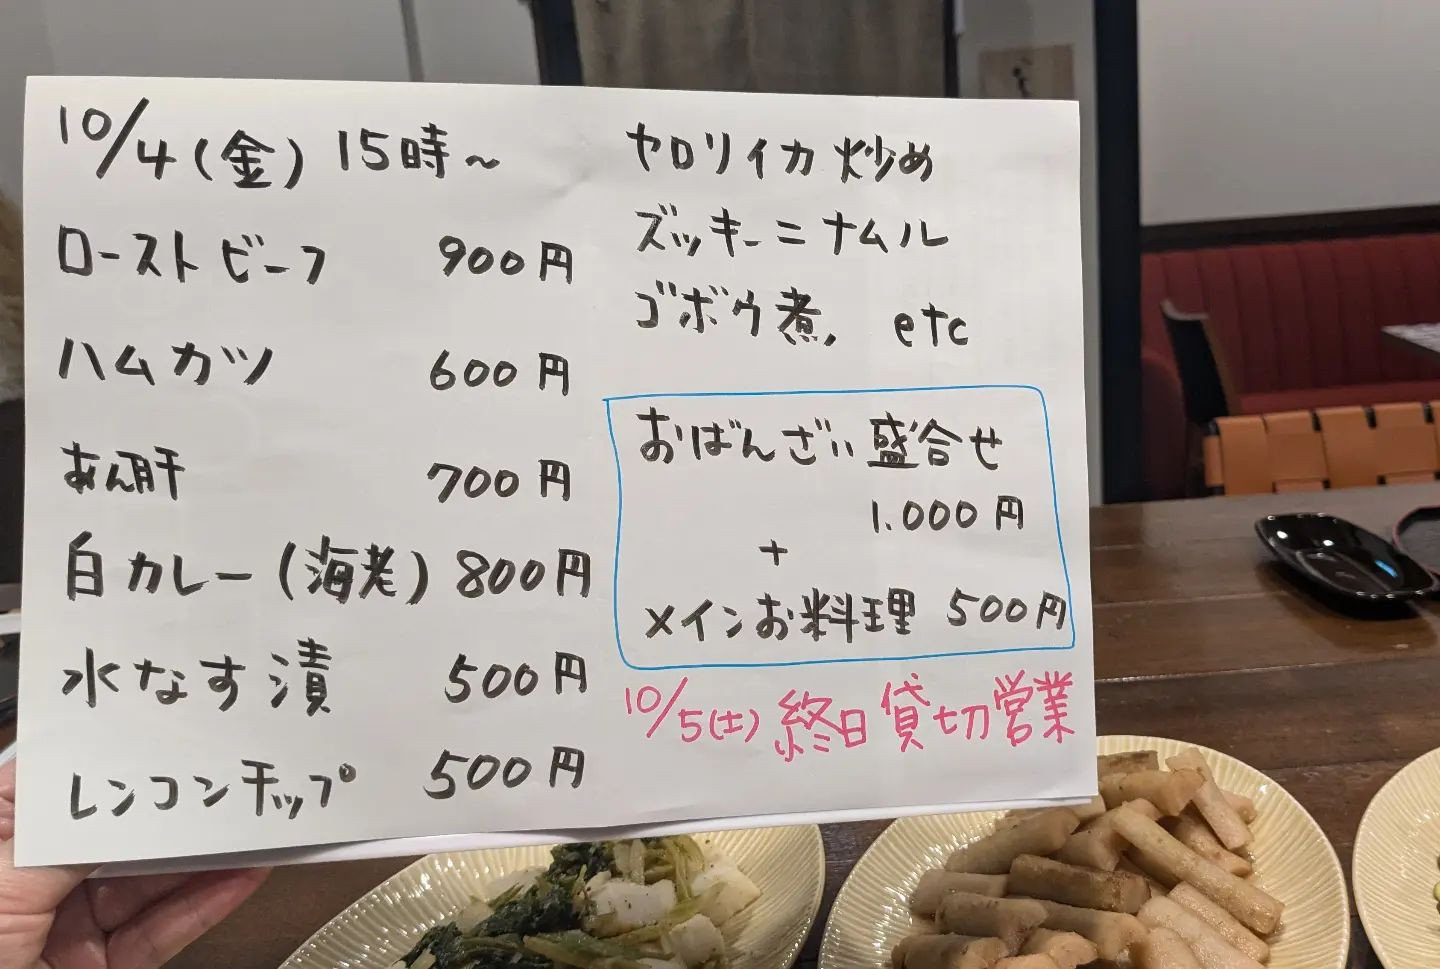 10/4(金) 15時~
ローストビーフ 900円
ハムカツ 600円
あん肝 700円
白カレー(海老) 800円
水なす漬 500円
レンコンチップ 500円
ヤロリイカ炒め
ズッキーニナムル
ゴボウ煮, etc
おばんざい盛合せ
1.000円
+
メインお料理 500円
10/5(土) 終日貸切営業